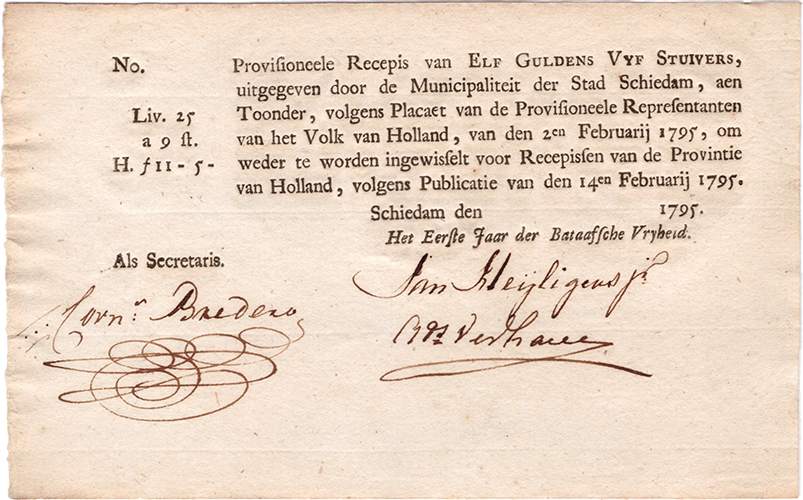 No.
Provisioneele Recepis van ELF GULDENS VYF STUIVERS,
uitgegeven door de Municipaliteit der Stad Schiedam, aen
Liv. 25 Toonder, volgens Placaet van de Provisioneele Representanten
a 9 st. van het Volk van Holland, van den 2en Februarij 1795, om
H. ƒ11-5- weder te worden ingewisselt voor Recepissen van de Provintie
van Holland, volgens Publicatie van den 14en Februarij 1795.
Schiedam den 1795.
Het Eerste Jaar der Bataafsche Vryheid.
Als Secretaris.
Jan Heijligens jr
Corns. Bredero
Verhave